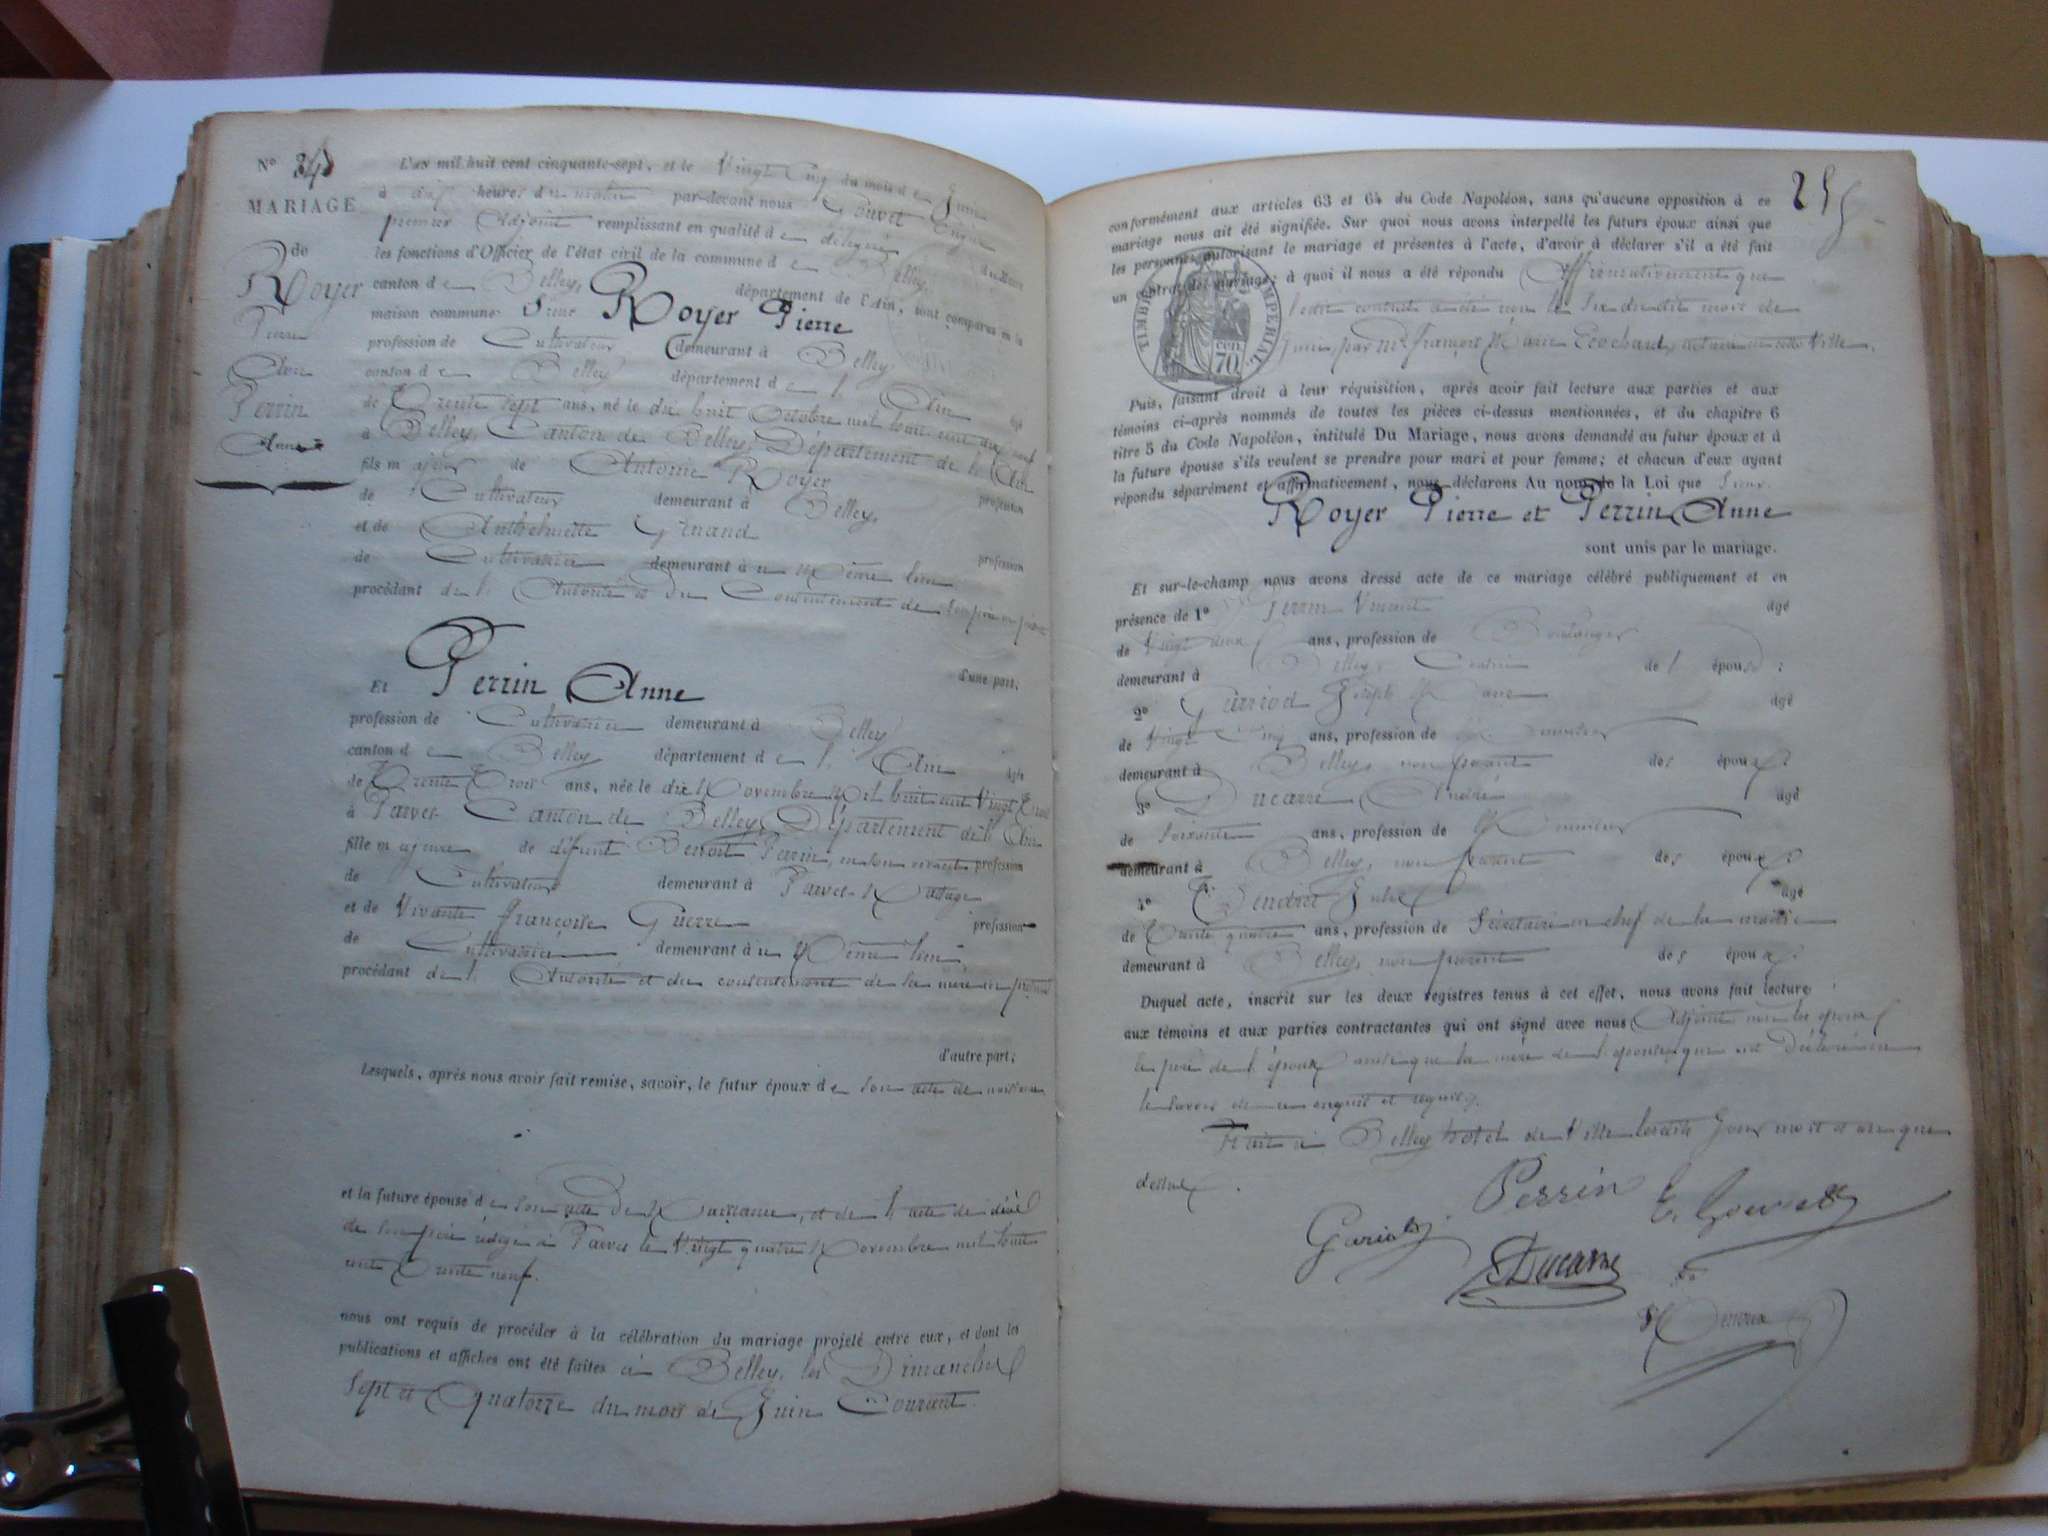 N° 34
MARIAGE
de
Royer
Pierre
Perrin
Anne
L'an mil huit cent cinquante-sept, et le Vingt Cinq du mois de Juin
à dix heures du matin par-devant nous Gouvet
premier Adjoint remplissant en qualité de délégué du Maire
les fonctions d'Officier de l'état civil de la commune de Belley,
canton de Belley, département de l'Ain, sont comparus en la
maison commune Sieur Royer Pierre
profession de Cultivateur demeurant à Belley
canton de Belley département de l'Ain âgé
de Trente sept ans, né le dix huit Octobre mil huit cent dix neuf
à Belley, Canton de Belley, Département de l'Ain
fils majeur de Antoine Royer profession
de Cultivateur demeurant à Belley,
et de Anthelmette Grinand profession
de Cultivatrice demeurant au Même lieu
procédant de l'Autorité et du Consentement de son père ici présent
d'une part;
Et Perrin Anne
profession de Cultivatrice demeurant à Belley
canton de Belley département de l'Ain âgée
de Trente Trois ans, née le dix Novembre mil huit cent Vingt Trois
à Parves Canton de Belley, Département de l'Ain
fille majeure de défunt Benoît Perrin, en son vivant profession
de Cultivateur demeurant à Parves
et de Vivante Françoise Guerre profession
de Cultivatrice demeurant au Même lieu,
procédant de l'Autorité et du consentement de la mère ici présente
d'autre part;
Lesquels, après nous avoir fait remise, savoir, le futur époux de son acte de naissance
et la future épouse de son acte de Naissance, et de l'acte de décès
de son père rédigé à Parves le Vingt quatre Novembre mil huit
cent Trente neuf.
nous ont requis de procéder à la célébration du mariage projeté entre eux, et dont les
publications et affiches ont été faites à Belley, les Dimanches
Sept et Quatorze du mois de Juin Courant.
255
conformément aux articles 63 et 64 du Code Napoléon, sans qu'aucune opposition à ce
mariage nous ait été signifiée. Sur quoi nous avons interpellé les futurs époux ainsi que
les personnes autorisant le mariage et présentes à l'acte, d'avoir à déclarer s'il a été fait
un contrat de mariage; à quoi il nous a été répondu Affirmativement que
ledit contrat a été reçu le Six du dit mois de
Juin par Me François Marie Cochard, notaire en cette Ville.
TIMBRE IMPERIAL
70 cen.
Puis, faisant droit à leur réquisition, après avoir fait lecture aux parties et aux
témoins ci-après nommés de toutes les pièces ci-dessus mentionnées, et du chapitre 6
titre 5 du Code Napoléon, intitulé Du Mariage, nous avons demandé au futur époux et à
la future épouse s'ils veulent se prendre pour mari et pour femme; et chacun d'eux ayant
répondu séparément et affirmativement, nous déclarons Au nom de la Loi que Sieur
Royer Pierre et Perrin Anne
sont unis par le mariage.
Et sur-le-champ nous avons dressé acte de ce mariage célébré publiquement et en
présence de 1° Perrin Vincent âgé
de Vingt deux ans, profession de Boulanger
demeurant à Belley, de l'épouse;
2° Joseph Marie âgé
de Vingt Cinq ans, profession de
demeurant à Belley, non parent des époux;
3° Ducarre André âgé
de soixante ans, profession de
demeurant à Belley, non parent des époux;
4° Jules âgé
de Trente quatre ans, profession de Sécrétaire en chef de la mairie
demeurant à Belley, non parent des époux;
Duquel acte, inscrit sur les deux registres tenus à cet effet, nous avons fait lecture
aux témoins et aux parties contractantes qui ont signé avec nous Adjoint non les époux
le père de l'époux ainsi que la mère de l'épouse, qui ont Déclaré ne
le savoir de ce enquis et requis.
Fait à Belley hotel de Ville lesdits Jour mois et an que
dessus.
Perrin E. Gouvet
Ducarre